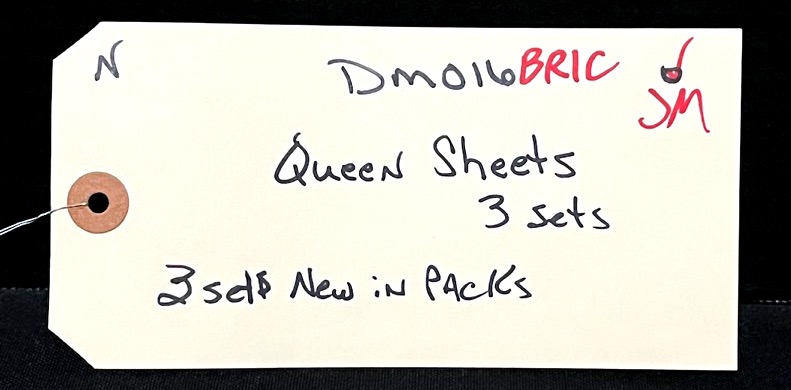 N DM016BRIC
JM
Queen Sheets
3 sets
3 sets New in PACKs